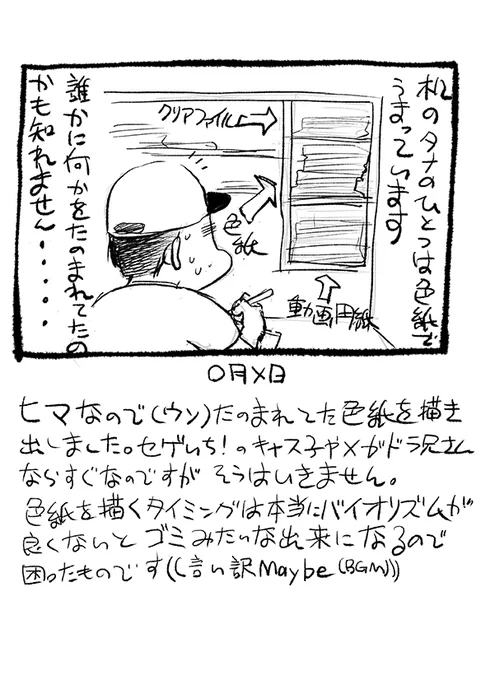 机のタナのひとつは色紙で
うまっています
クリアファイル
色紙
動画用紙
誰かに何かをたのまれてたの
かも知れません・・・・・
〇月×日
ヒマなので(ウソ)たのまれてた色紙を描き
出しました。セゲいち!のキャス子やメガドラ兄さん
ならすぐなのですが そうはいきません。
色紙を描くタイミングは本当にバイオリズムが
良くないと ゴミみたいな出来になるので
困ったものです((言い訳Maybe(BGM)))